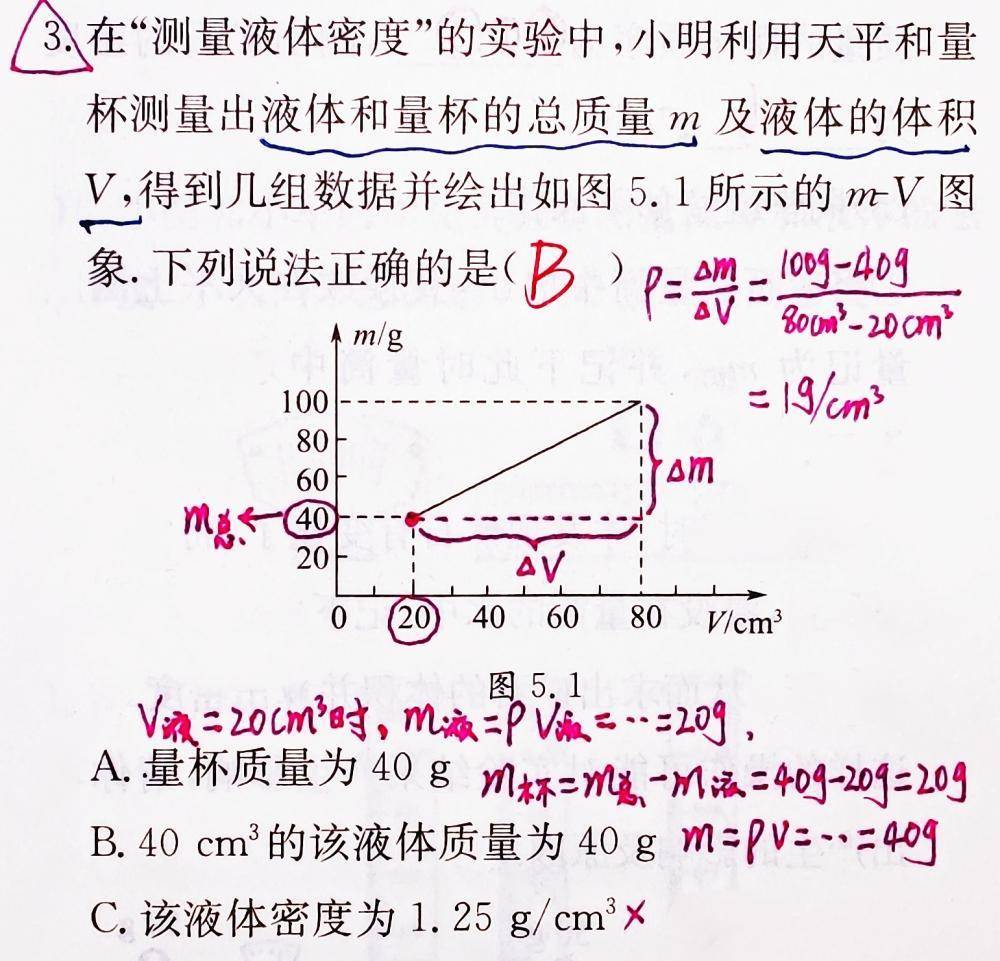 3. 在“测量液体密度”的实验中,小明利用天平和量
杯测量出液体和量杯的总质量 m 及液体的体积
V,得到几组数据并绘出如图 5.1 所示的 m-V 图
象. 下列说法正确的是( B )
ρ=Δm/ΔV=(100g-40g)/(80cm³-20cm³)
=1g/cm³
m/g
100
80
60
40
20
m总
Δm
ΔV
0 20 40 60 80 V/cm³
图 5.1
V液=20cm³时, m液=ρV液=…=20g,
A. 量杯质量为 40 g m杯=m总-m液=40g-20g=20g
B. 40 cm³的该液体质量为 40 g m=ρV=…=40g
C. 该液体密度为 1. 25 g/cm³ ×